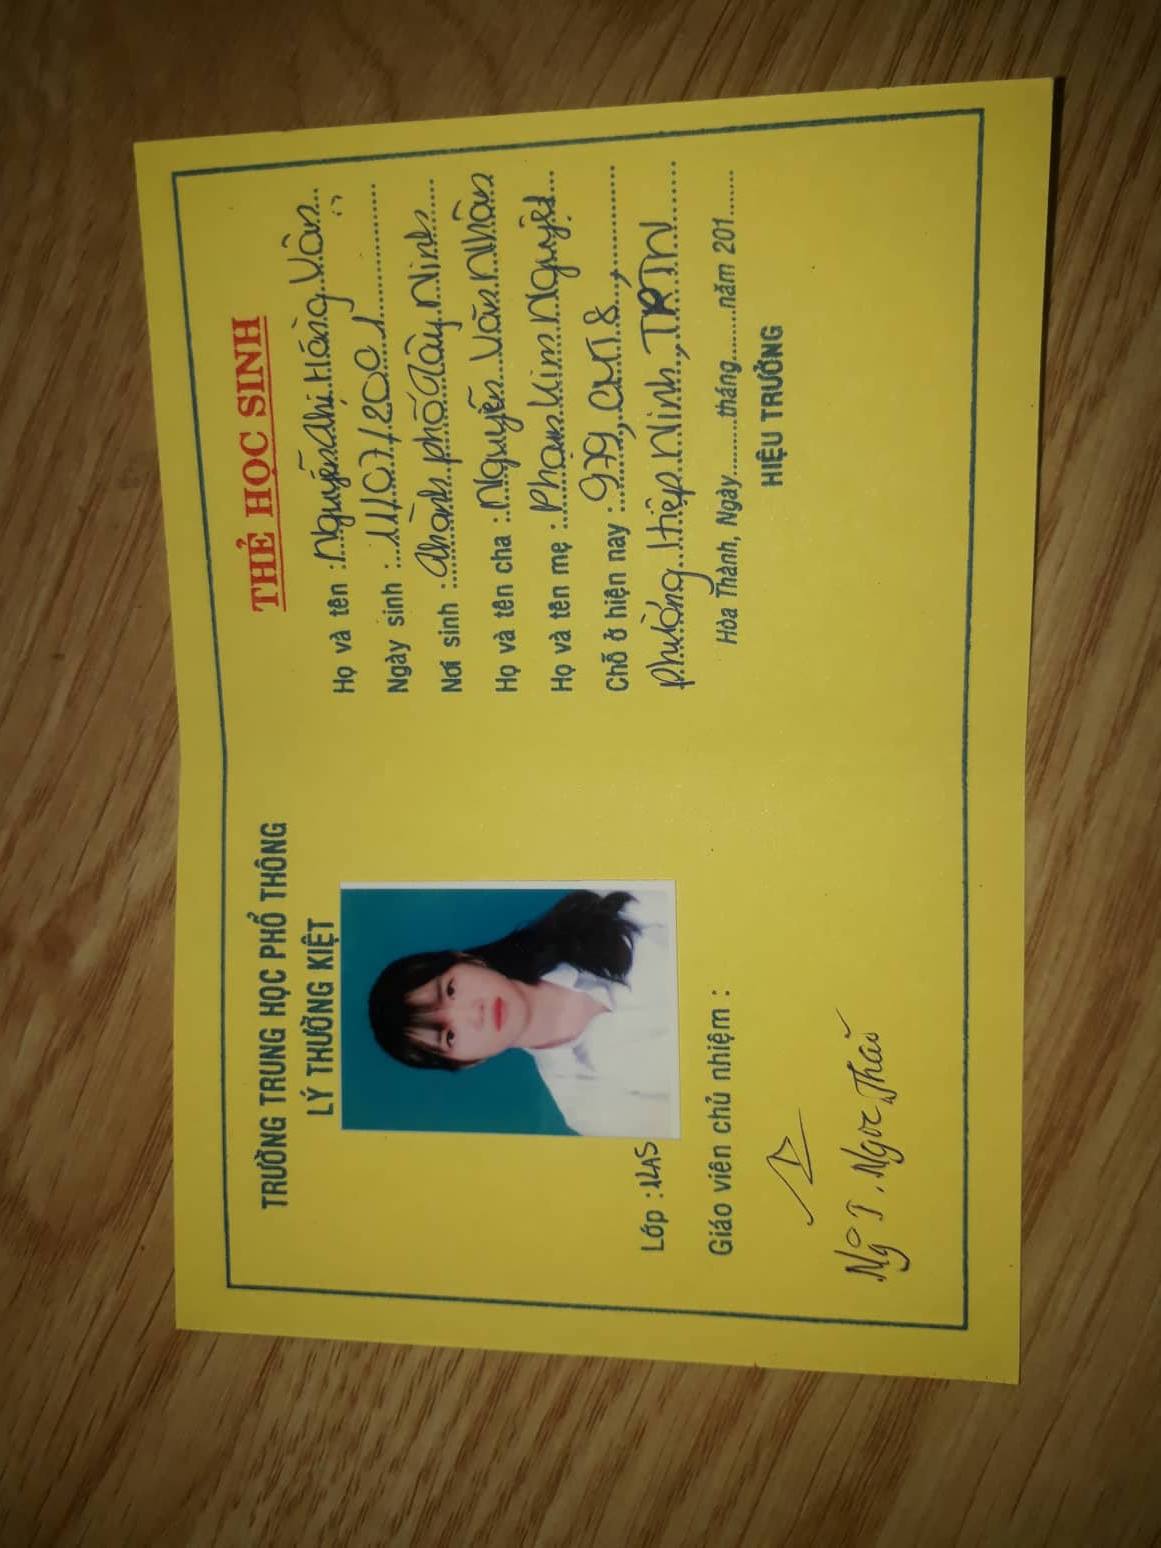 TRƯỜNG TRUNG HỌC PHỔ THÔNG
LÝ THƯỜNG KIỆT
Lớp : 12A5
Giáo viên chủ nhiệm :
Ngô T. Ngọc Thảo
THẺ HỌC SINH
Họ và tên : Nguyễn Thị Hồng Vân
Ngày sinh : 11/07/2001
Nơi sinh : Thành phố Tây Ninh
Họ và tên cha : Nguyễn Văn Nhân
Họ và tên mẹ : Phan Kim Nguyệt
Chỗ ở hiện nay : 979, CMT8,
phường Hiệp Ninh, TPTN
Hòa Thành, Ngày.........tháng.........năm 201......
HIỆU TRƯỞNG